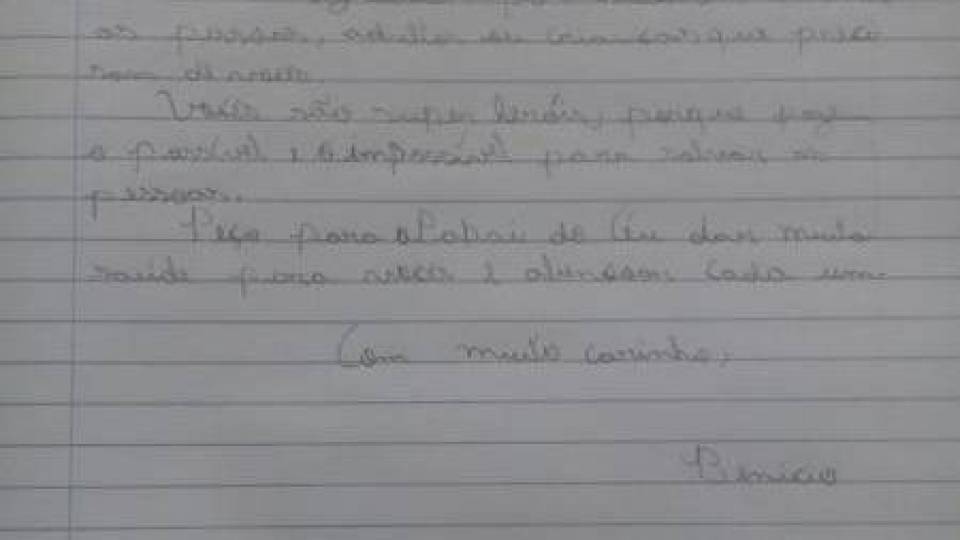 as pessoas, adultos ou crianças que preci
sam de vocês.
Vocês são super heróis, porque faz
o possível e o impossível para salvar as
pessoas.
Peço para o Papai do Céu dar muita
saúde para vocês e abençoar cada um
Com muito carinho,
Benício